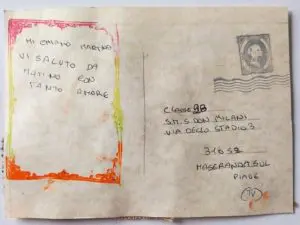 MI CHIAMO MARTINA
VI SALUTO DA
MUTINO CON
TANTO AMORE
CLASSE 2B
S.M.S DON MILANI
VIA DELLO STADIO 3
31052
MASERANDA SUL
PIAVE
TV